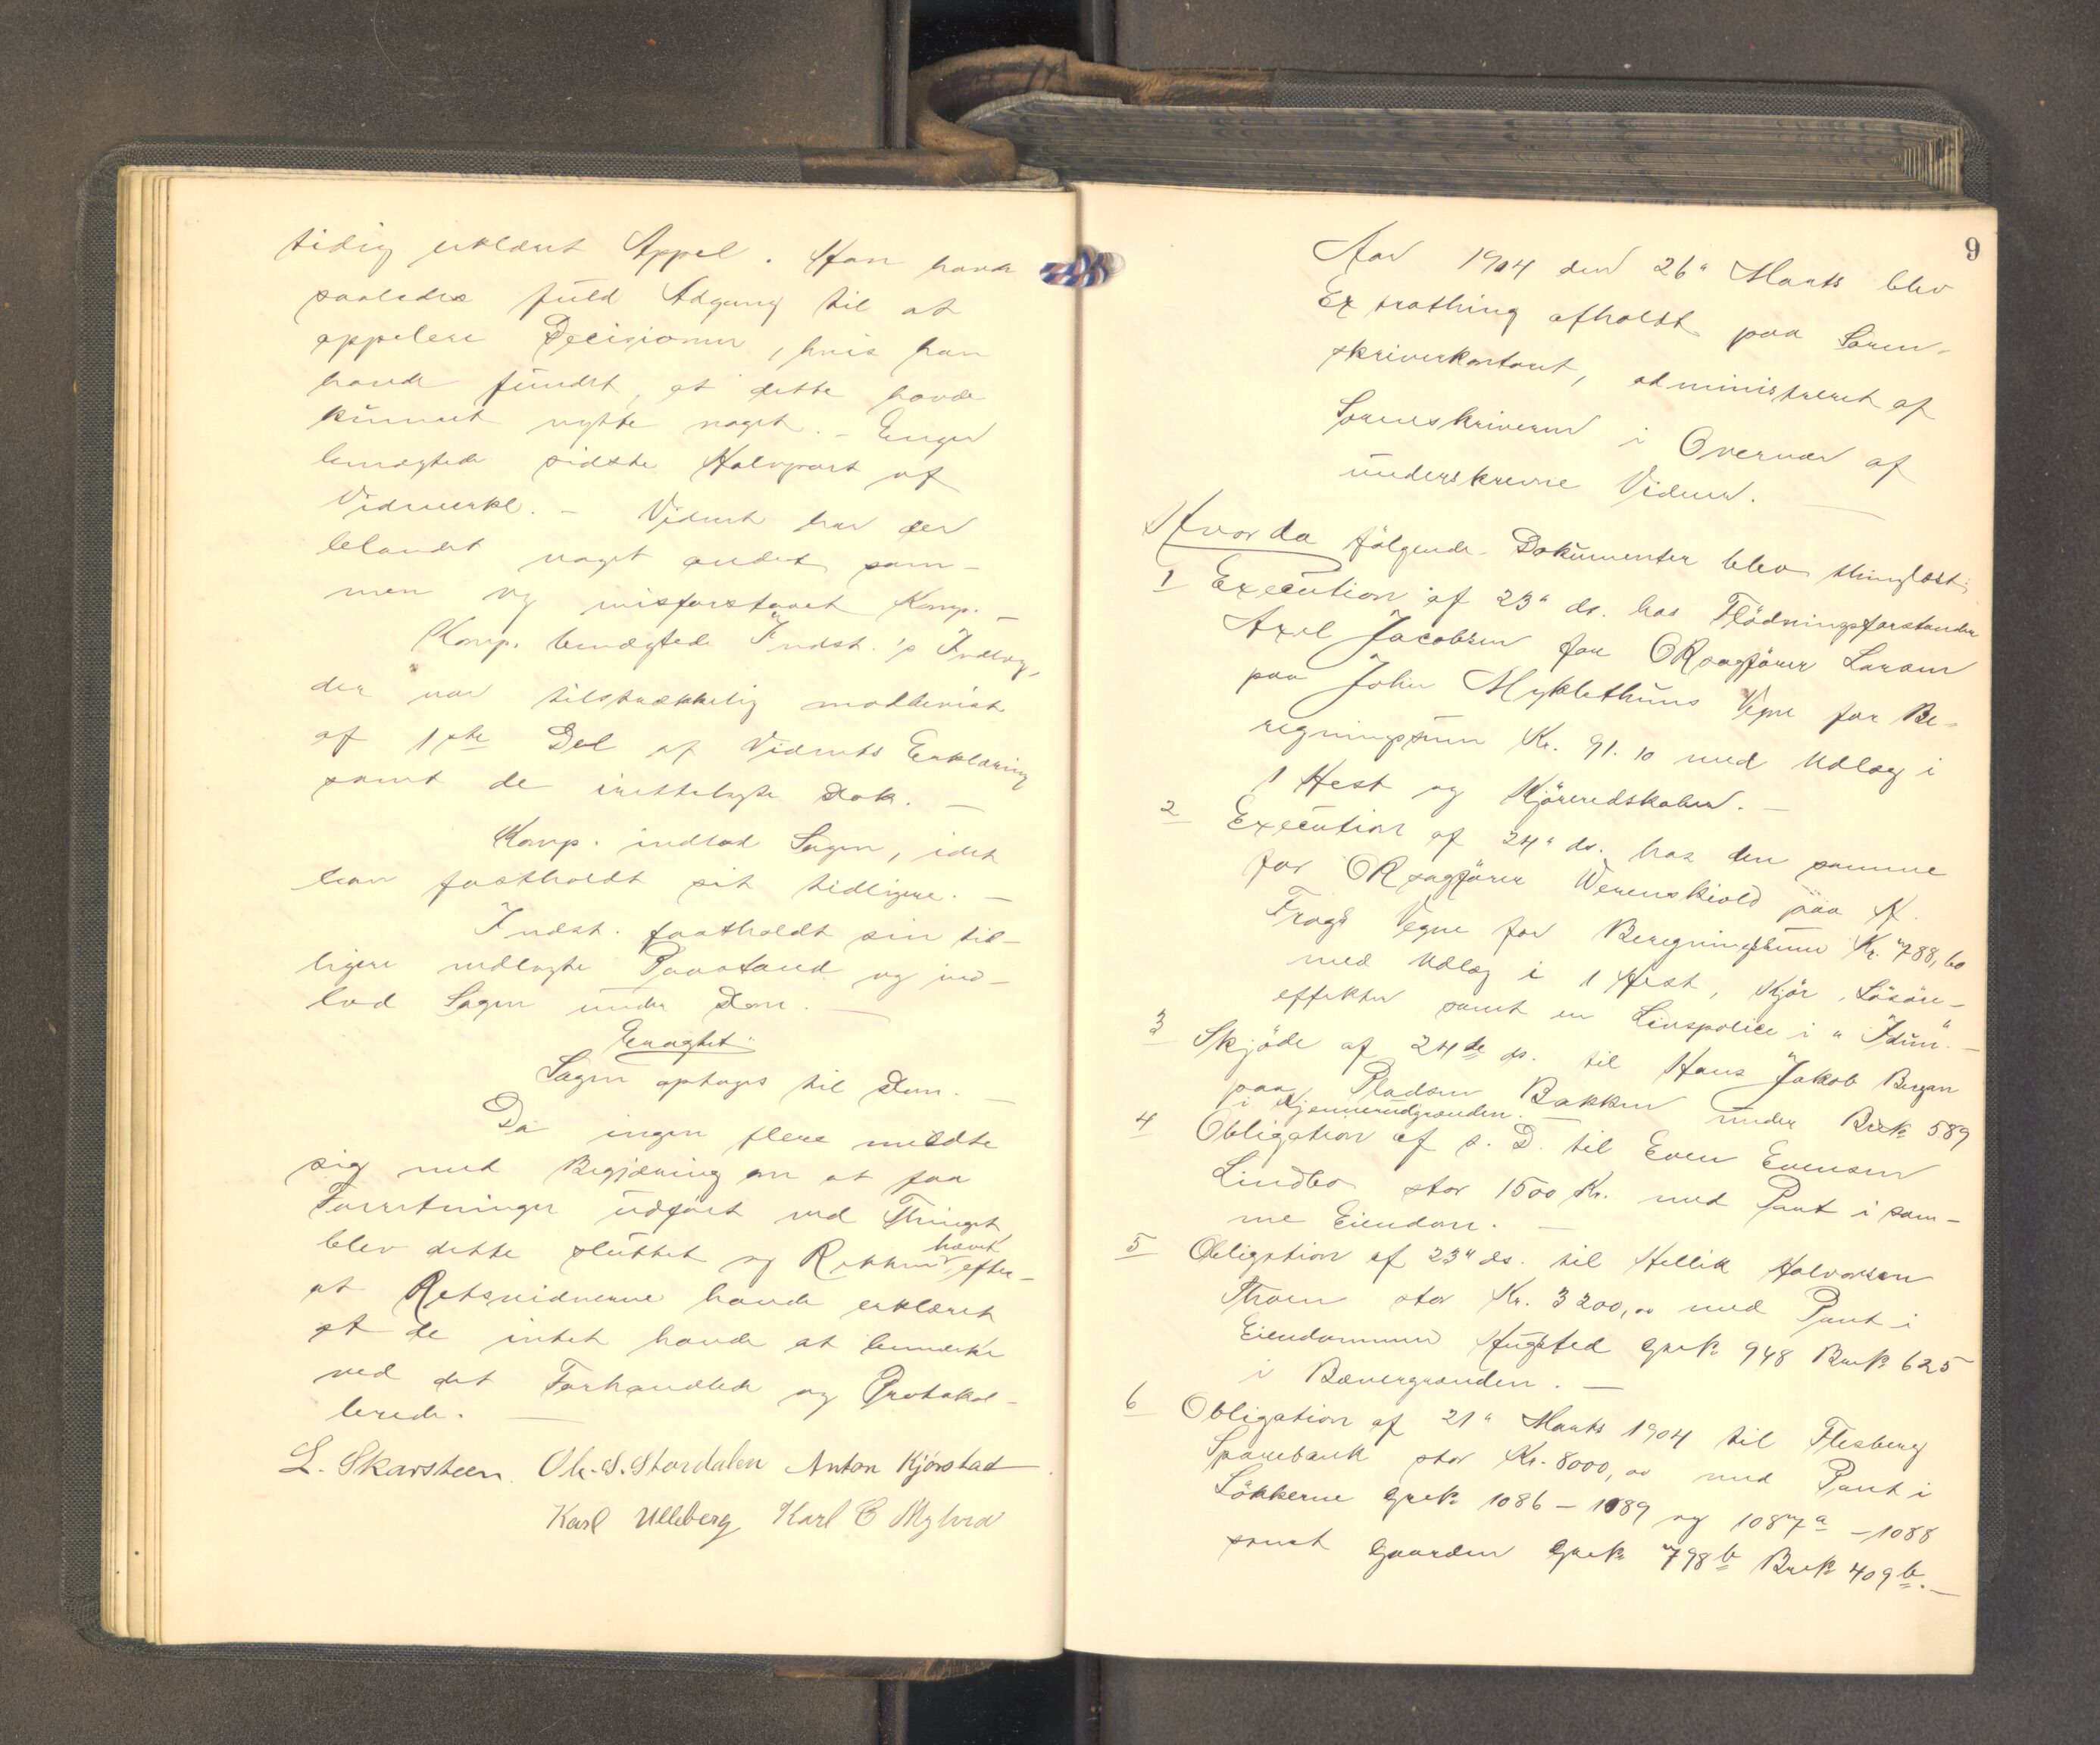 tidig erklært Appel. Han havde
saaledes fuld Adgang til at
appelere Decisionen, hvis han
havde fundet, at dette havde
kunnet nytte noget. – Enger
benægtede sidste Halvpart af
Vidneerkl. – Vidnet har her
blandet noget andet sam-
men og misforstaaet Komp. –
Komp. benægtede Indst.'s Indlæg,
der var tilstrækkelig modbevist
af 1ste Del af Vidnets Erklæring
samt de irettelagte Dok. –
Komp. indlod Sagen, idet
han fastholdt sit tidligere. –
Indst. fastholdt sin tid-
ligere nedlagte Paastand og ind-
lod Sagen under Dom. –
Eragtet:
Sagen optages til Dom. –
Da ingen flere meldte
sig med Begjæring om at faa
Forretninger udført ved Thinget,
blev dette sluttet og Retten hævet efter-
at Retsvidnerne havde erklæret
at de intet havde at bemærke
ved det Forhandlede og Protokol-
lerede. –
L. Skarsteen. Ole S. Stordalen Anton Kjørstad.
Karl Ulleberg Karl C Myhra
9
Aar 1904 den 26" Marts blev
Extrathing afholdt paa Soren-
skriverkontoret, administreret af
Sorenskriveren i Overvær af
underskrevne Vidner. –
Hvorda følgende Dokumenter blev thinglæst:
1 Execution af 23" ds. hos Flødningsforstander
Axel Jacobsen for ORsagfører Larsen
paa John Myklethuns Vegne for Be-
regningssum Kr. 91.10 med Udlæg i
1 Hest og Kjøreredskaber. –
2 Execution af 24" ds. hos den samme
for ORsagfører Werenskiold paa H.
Frogs Vegne for Beregningssum Kr. 788,60
med Udlæg i 1 Hest, Kjør, Løsøre-
effekter samt en Livspolice i "Idun". –
3 Skjøde af 24de ds. til Hans Jakob Bergan
paa Pladsen Bakken under Brk. 589
i Kjennerudgrænden. –
4 Obligation af s. D. til Even Evensen
Lindbo stor 1500 Kr. med Pant i sam-
me Eiendom. –
5 Obligation af 23" ds. til Hellik Halvorsen
Thoen stor Kr. 3200,00 med Pant i
Eiendommen Hugsted Grk. 948 Brk. 625
i Bævergrænden. –
6 Obligation af 21" Marts 1904 til Flesberg
Sparebank stor Kr. 8000,00 med Pant i
Løkkerne Grk. 1086 – 1089 og 1087a – 1088
samt Gaarden Grk. 798b Brk. 409b. –